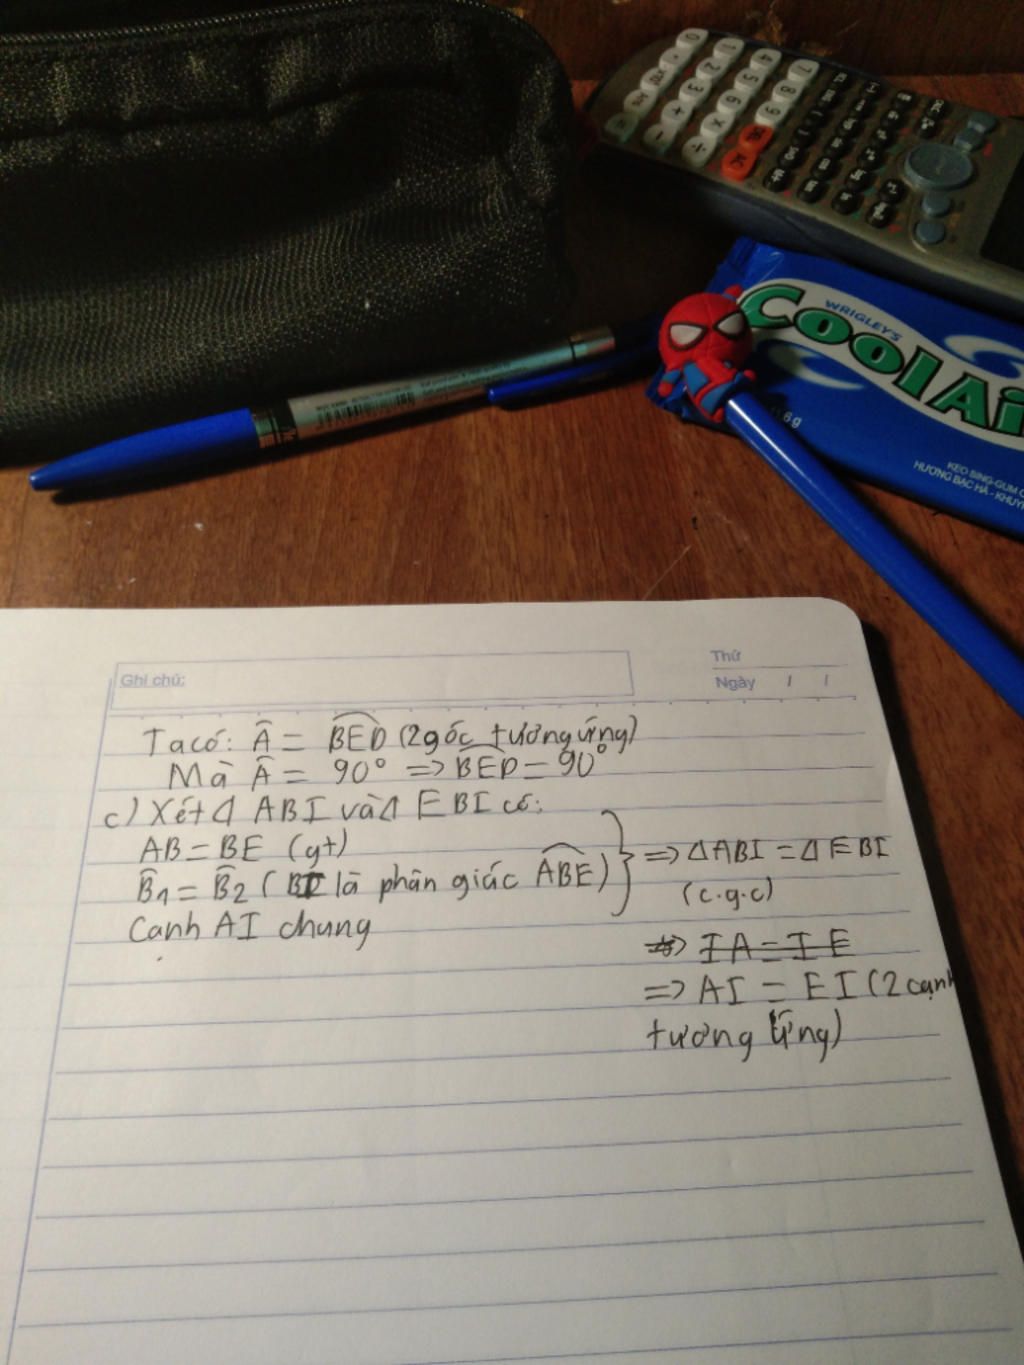 WRIGLEY'S
CoolAi
11.6g
KẸO SING-GUM
HƯƠNG BẠC HÀ - KHUY
Ghi chú:
Thứ
Ngày / /
Ta có: Â = BÊD (2 góc tương ứng)
Mà Â = 90° => BÊD = 90°
c) Xét Δ ABI và Δ EBI có:
AB = BE (gt)
B̂1 = B̂2 (BI là phân giác ABE)
Cạnh AI chung
=> Δ ABI = Δ EBI
(c.g.c)
=> IA = IE
=> AI = EI (2 cạnh
tương ứng)